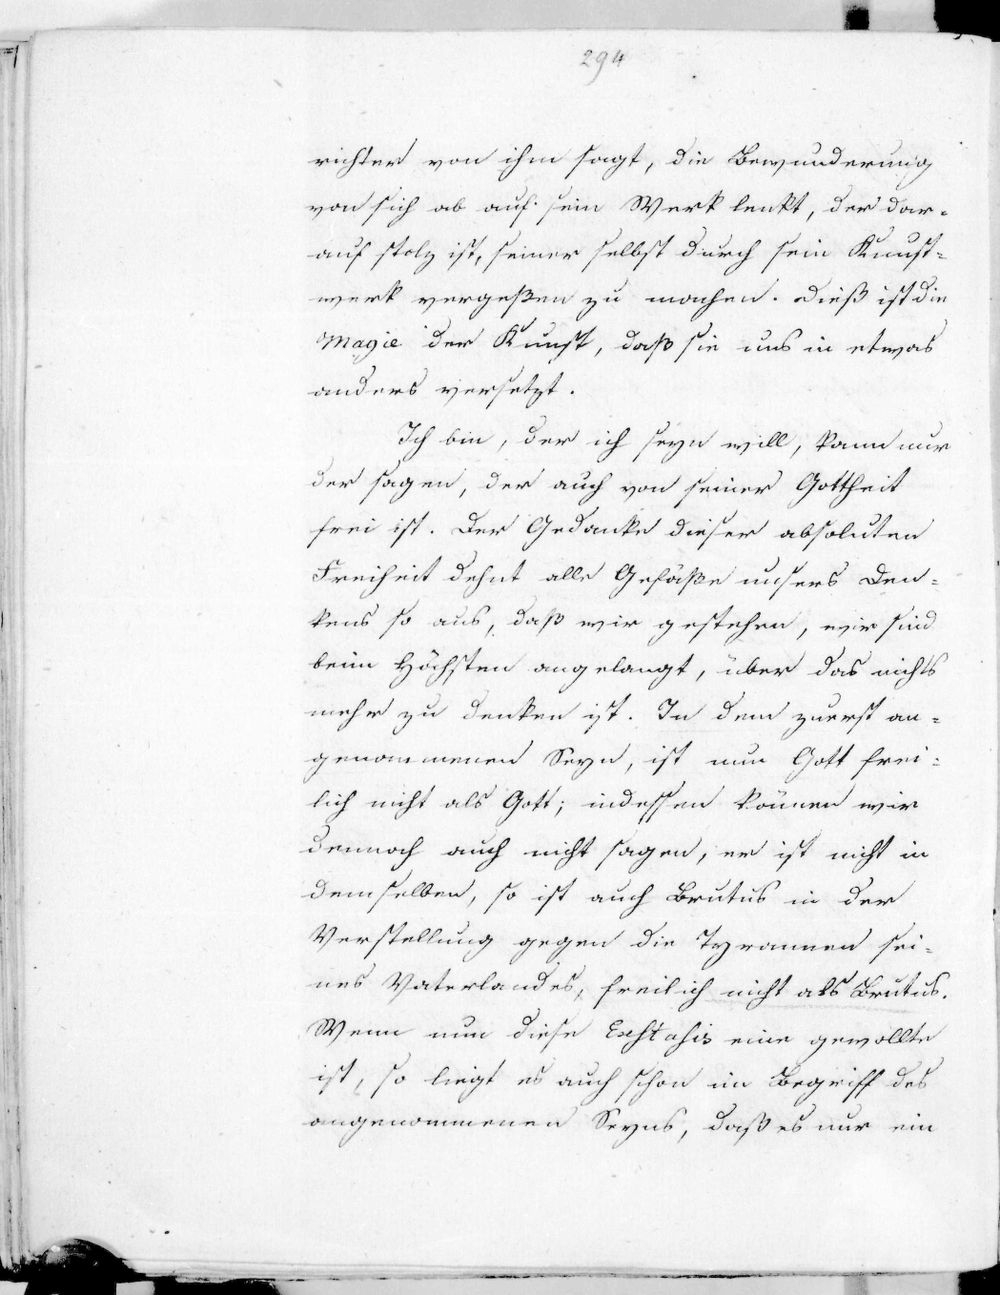 294
richter von ihm sagt, die Bewunderung
von sich ab auf sein Werk lenkt, der dar-
auf stolz ist, seiner selbst durch sein Kunst-
werk vergeßen zu machen. Dieß ist die
Magie der Kunst, daß sie uns in etwas
anders versetzt.
Ich bin, der ich seyn will, kann nur
der sagen, der auch von seiner Gottheit
frei ist. Der Gedanke dieser absoluten
Freiheit dehnt alle Gefäße unsers Den-
kens so aus, daß wir gestehen, wir sind
beim Höchsten angelangt, über das nichts
mehr zu denken ist. In dem zuerst an-
genommenen Seyn, ist nun Gott frei-
lich nicht als Gott; indessen können wir
dennoch auch nicht sagen, er ist nicht in
demselben, so ist auch Brutus in der
Verstellung gegen die Tyrannen sei-
nes Vaterlandes, freilich nicht als Brutus.
Wenn nun diese Exstasis eine gewollte
ist, so liegt es auch schon im Begriff des
angenommenen Seyns, daß es nur ein